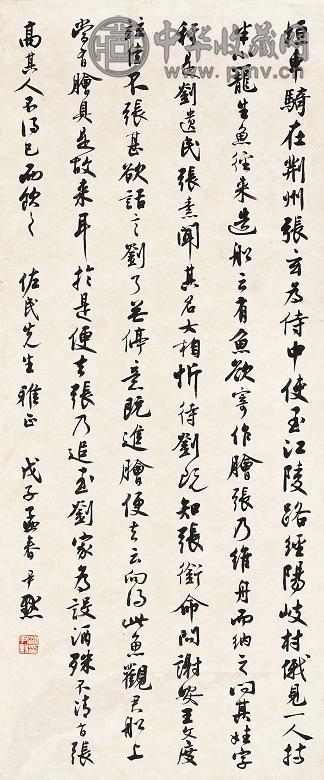 中华收藏网
www.pmv.cn
桓車騎在荊州張玄為侍中使至江陵路經陽岐村俄見一人持
半小籠生魚徑來造船云有魚欲寄作膾張乃維舟而納之問其姓字
稱是劉遺民張素聞其名大相忻待劉既知張銜命問謝安王文度
並佳不張甚欲話言劉了無停意既進膾便去云向得此魚觀君船上
當有膾具是故來耳於是便去張乃追至劉家為設酒殊不清旨張
高其人不得已而飲之 佐民先生雅正 戊子孟春尹默